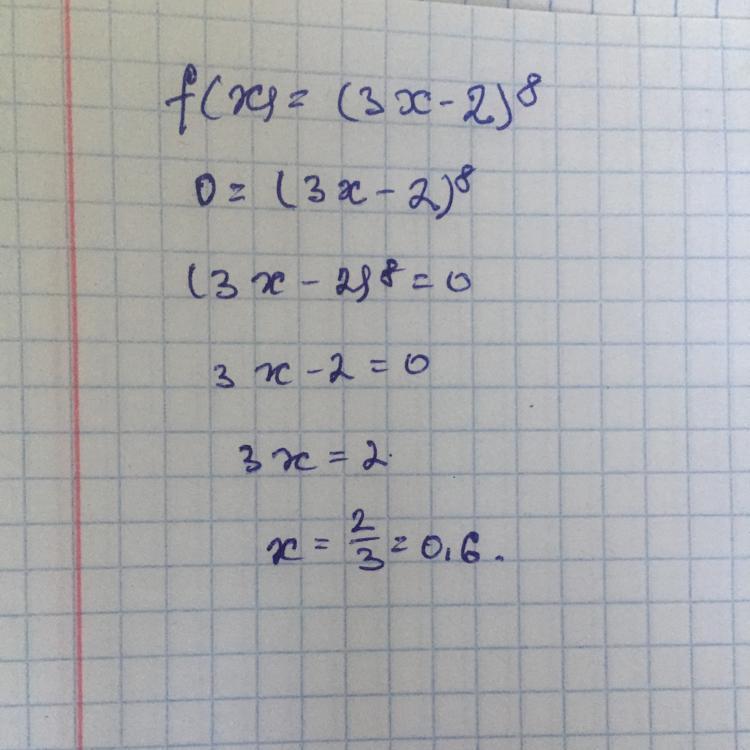 f(x) = (3x-2)⁸
0 = (3x-2)⁸
(3x-2)⁸ = 0
3x-2 = 0
3x = 2
x = 2/3 = 0,6.